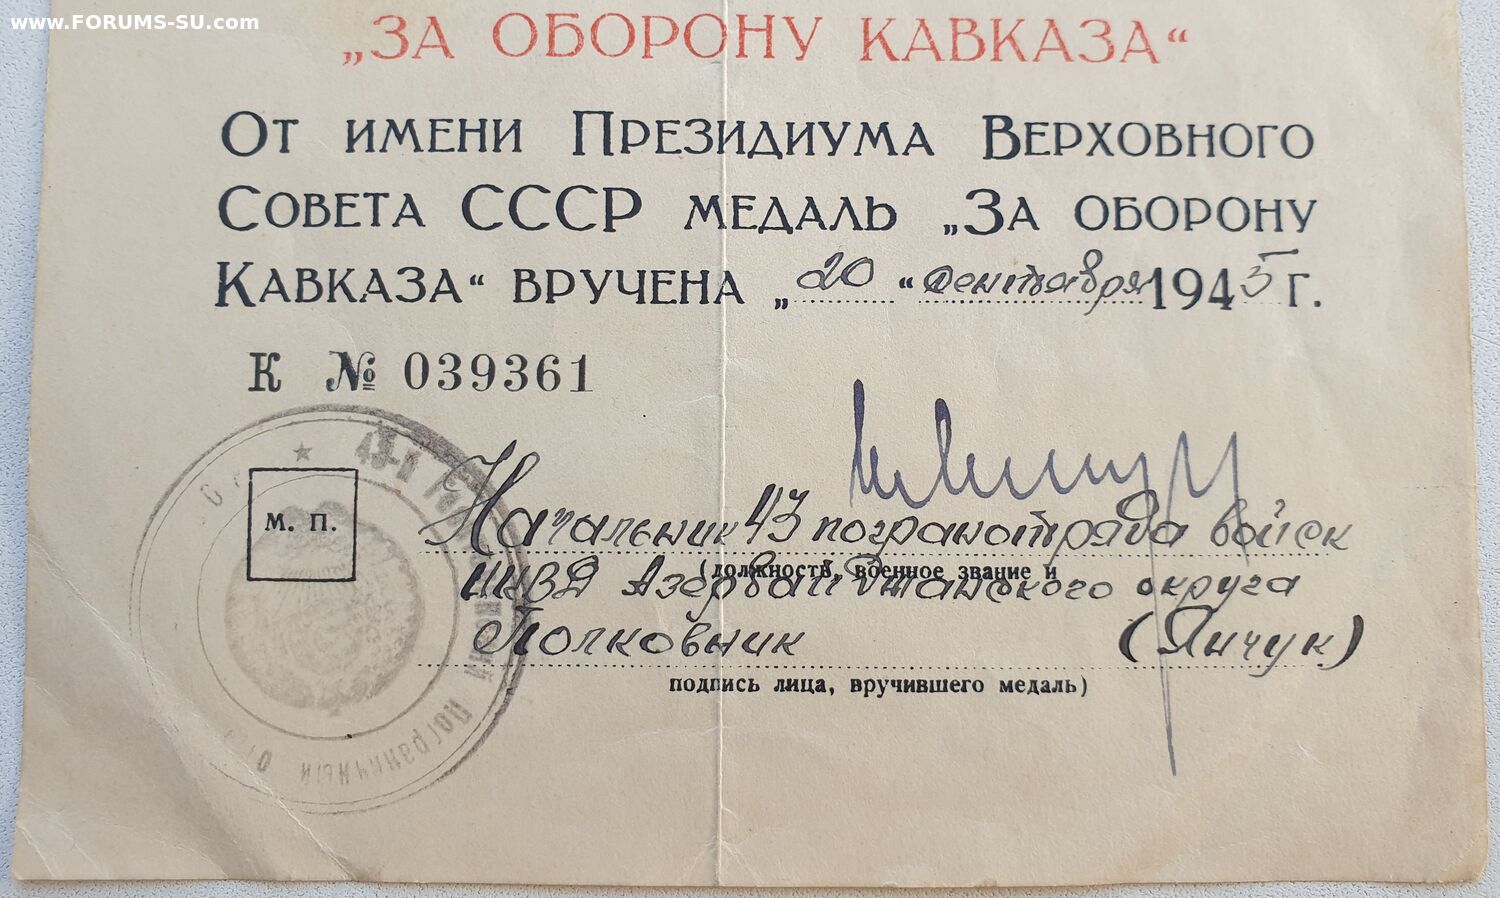 www.FORUMS-SU.com
„ЗА ОБОРОНУ КАВКАЗА“
От имени Президиума Верховного
Совета СССР медаль „За оборону
Кавказа“ вручена „20“ сентября 1945 г.
К № 039361
М. П.
43-й
Пограничный
Начальник 43 погранотряда войск
(должность, военное звание и
НКВД Азербайджанского округа
Полковник (Янчук)
подпись лица, вручившего медаль)